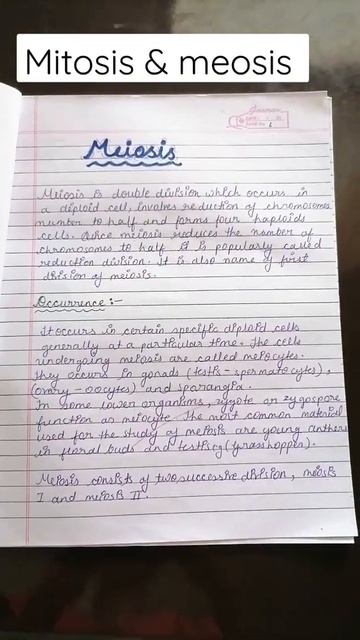 Mitosis & meosis
Meiosis
Meiosis is double division which occurs in
a diploid cell, involves reduction of chromosomes
number to half and forms four haploids
cells. Since meiosis reduces the number of
chromosomes to half it is popularly called
reduction division. It is also name of first
division of meiosis.
Occurrence :-
It occurs in certain specific diploid cells
generally at a particular time. The cells
undergoing meiosis are called meiocytes.
They occurs in gonads (testis - spermatocytes),
(ovary - oocytes) and sporangia.
In some lower organisms, zygote or zygospore
function as meiocyte. The most common material
used for the study of meiosis are young anthers
in floral buds and testis of (grasshopper).
Meiosis consists of two successive division, meiosis
I and meiosis II.